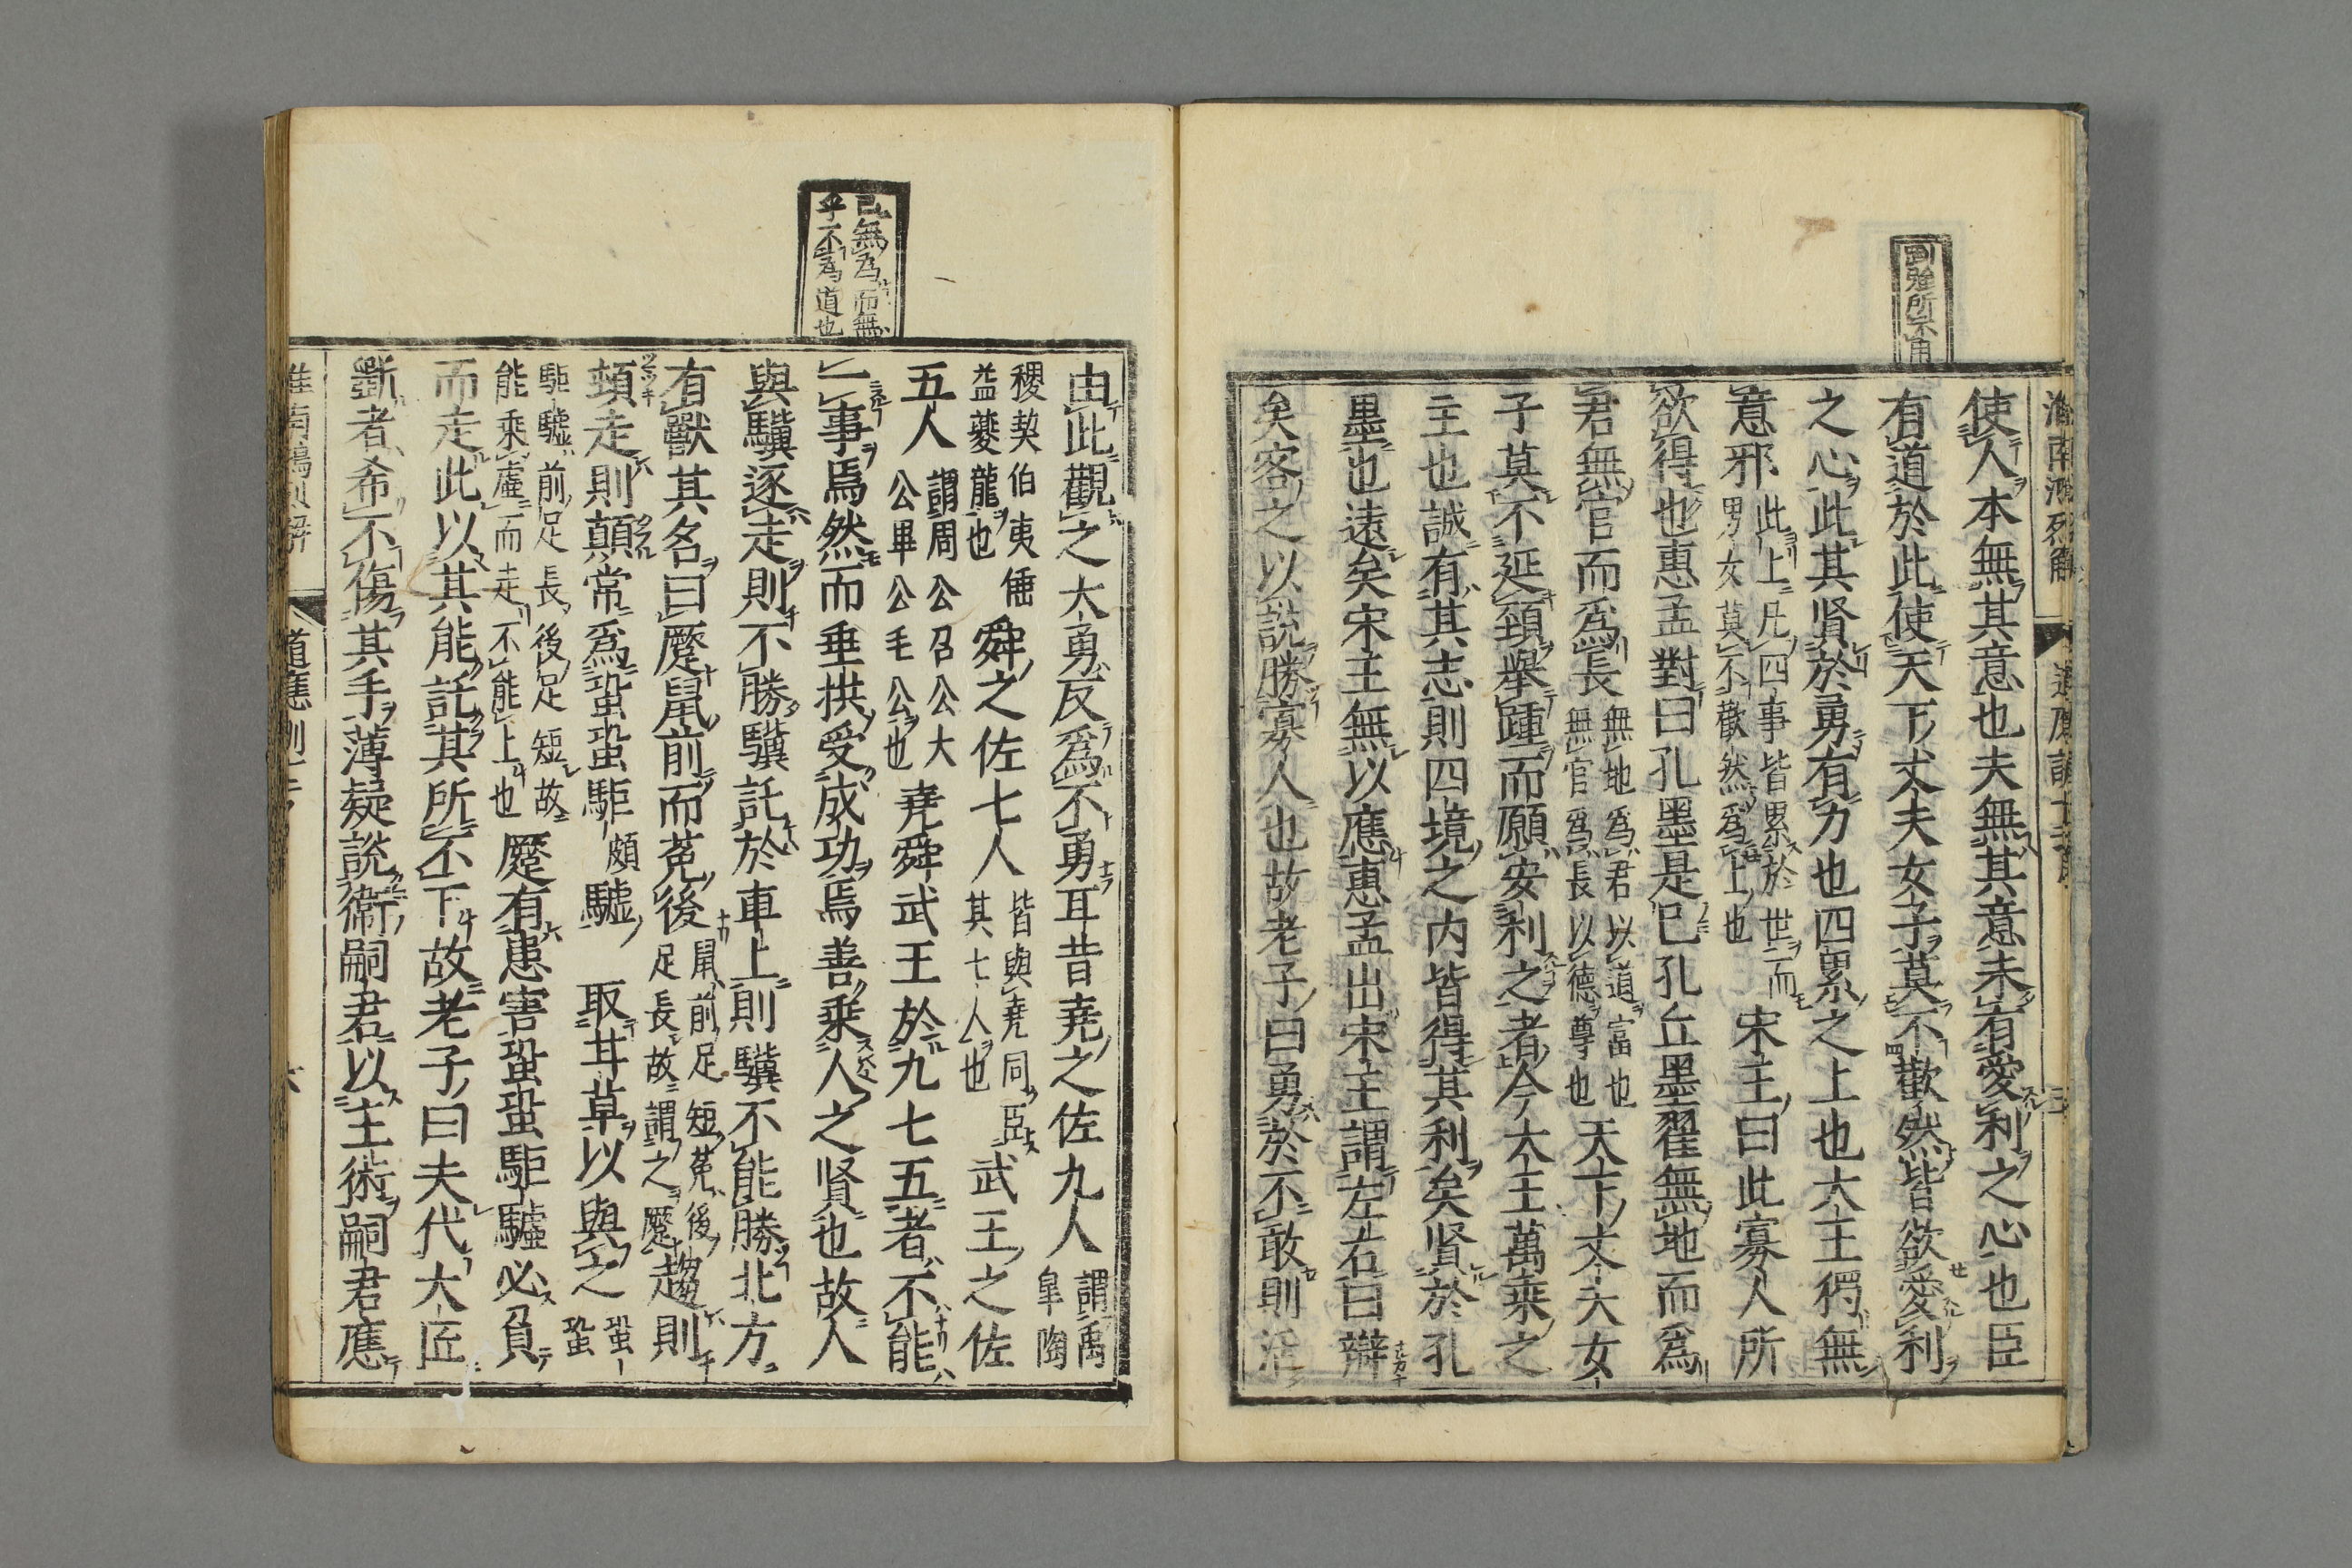 剛強所不用
使人本無其意也夫無其意未有愛利之心也臣
有道於此使天下丈夫女子莫不歡然皆欲愛利
之心此其賢於勇有力也四累之上也大王獨無
意邪此上凡四事皆累於世而男女莫不歡然爲上也宋王曰此寡人所
欲得也惠孟對曰孔墨是已孔丘墨翟無地而爲
君無官而爲長無地爲君以道富也無官爲長以德尊也天下丈夫女
子莫不延頸舉踵而願安利之者今大王萬乘之
主也誠有其志則四境之內皆得其利矣賢於孔
墨也遠矣宋王無以應惠孟出宋王謂左右曰辯
矣客之以說勝寡人也故老子曰勇於不敢則活
已無爲而無
乎不爲道也
由此觀之大勇反爲不勇耳昔堯之佐九人謂禹皐陶
稷契伯夷倕益夔龍也舜之佐七人皆與堯同臣其七人也武王之佐
五人謂周公召公大公畢公毛公也堯舜武王於九七五者不能
一事焉然而垂拱受成功焉善乘人之賢也故人
與驥逐走則不勝驥託於車上則驥不能勝北方
有獸其名曰蹷鼠前而菟後鼠前足短菟後足長故謂之蹷趨則
頓走則顛常爲蛩蛩駏驉取甘草以與之蛩蛩
駏驉前足長後足短故能乘虛而走不能上也蹷有患害蛩蛩駏驉必負
而走此以其能託其所不下故老子曰夫代大匠
斲者希不傷其手薄疑說衞嗣君以王術嗣君應